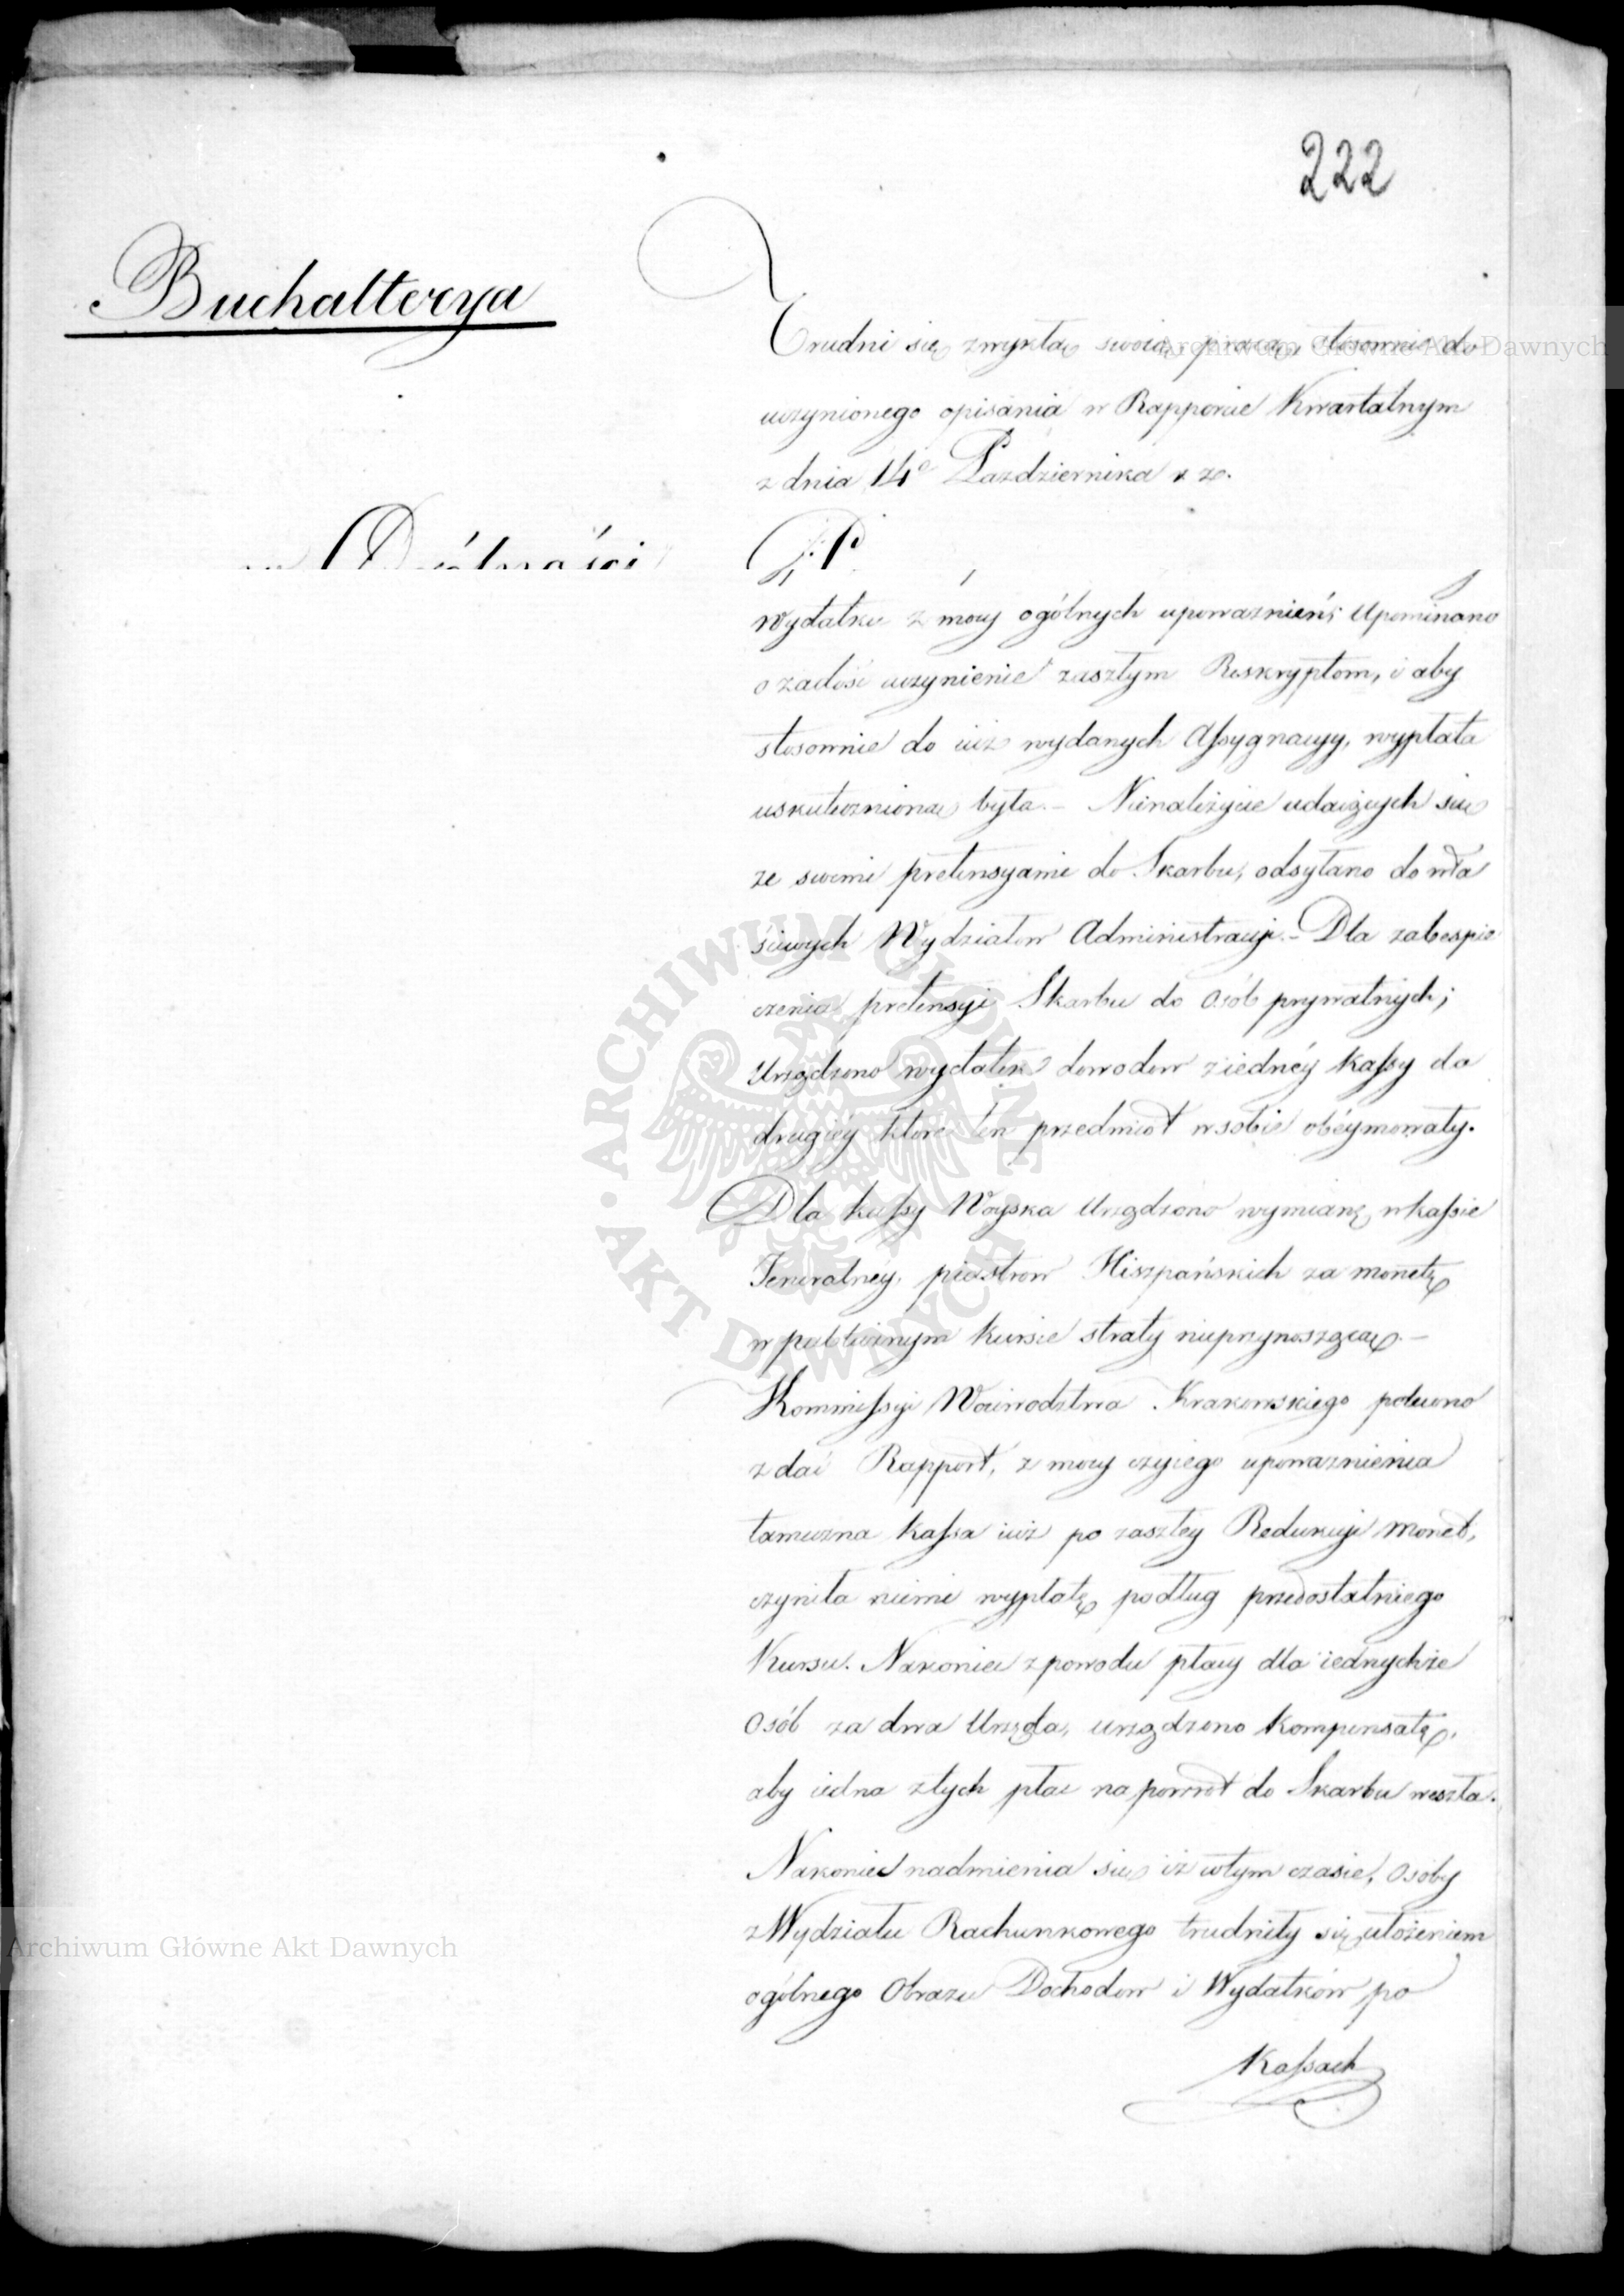 222
Buchalterya
Trudni się zwykłą swoią pracą, stosownie do
uczynionego opisania w Rapporcie Kwartalnym
z dnia 14º Października r. z.
wydatku z mocy ogólnych upoważnień; Upominano
o zadość uczynienie zaszłym Reskryptom, i aby
stosownie do iuż wydanych Assygnacyy, wypłata
uskutecznioną była. – Nienależycie udaiących się
ze swemi pretensyami do Skarbu, odsyłano do wła
ściwych Wydziałow Administracyi. – Dla zabespie
czenia pretensyi Skarbu do Osób prywatnych;
Urządzono wydatek dowodow z iednéy Kassy do
drugiéy które ten przedmiot w sobie obéymowały.
Dla Kassy Woyska Urządzono wymianę w Kassie
Jeneralnéy, piastrow Hiszpańskich za monetę
w publicznym Kursie straty nieprzynoszącą. –
Kommissyi Woiewodztwa Krakowskiego polecono
zdać Rapport, z mocy czyiego upoważnienia
tameczna Kassa iuż po zaszłey Redukcyi monet,
czyniła niemi wypłatę podług przedostatniego
Kursu. Nakoniec z powodu płacy dla iednychże
Osób za dwa Urzęda, urządzono Kompensatę,
aby iedna z tych płac na powrót do Skarbu weszła.
Nakoniec nadmienia się iż w tym czasie, Osoby
z Wydziału Rachunkowego trudniły się ułożeniem
ogólnego Obrazu Dochodow i Wydatków po
Kassach
Archiwum Główne Akt Dawnych
Archiwum Główne Akt Dawnych
ARCHIWUM GŁÓWNE AKT DAWNYCH